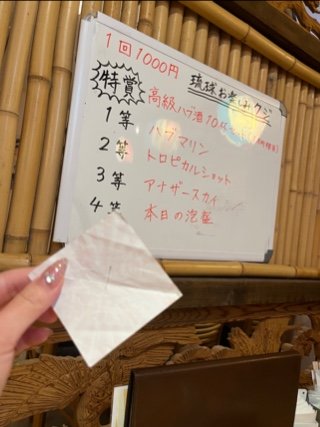 1回1000円
琉球お楽しみクジ
特賞 高級ハブ酒10杯
1等 ハブマリン
2等 トロピカルショット
3等 アナザースカイ
4等 本日の泡盛